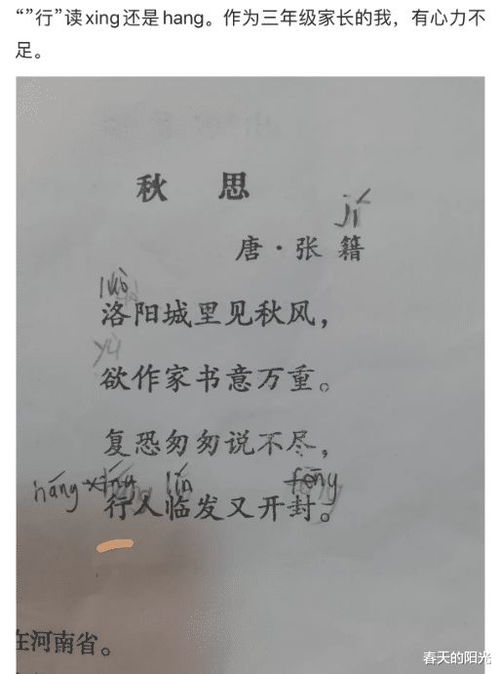 “”行”读xing还是hang。作为三年级家长的我，有心力不
足。
秋 思
jí
唐·张 籍
luò
洛阳城里见秋风，
yù
欲作家书意万重。
复恐匆匆说不尽，
háng xíng lín fēng
行人临发又开封。
在河南省。
春天的阳光